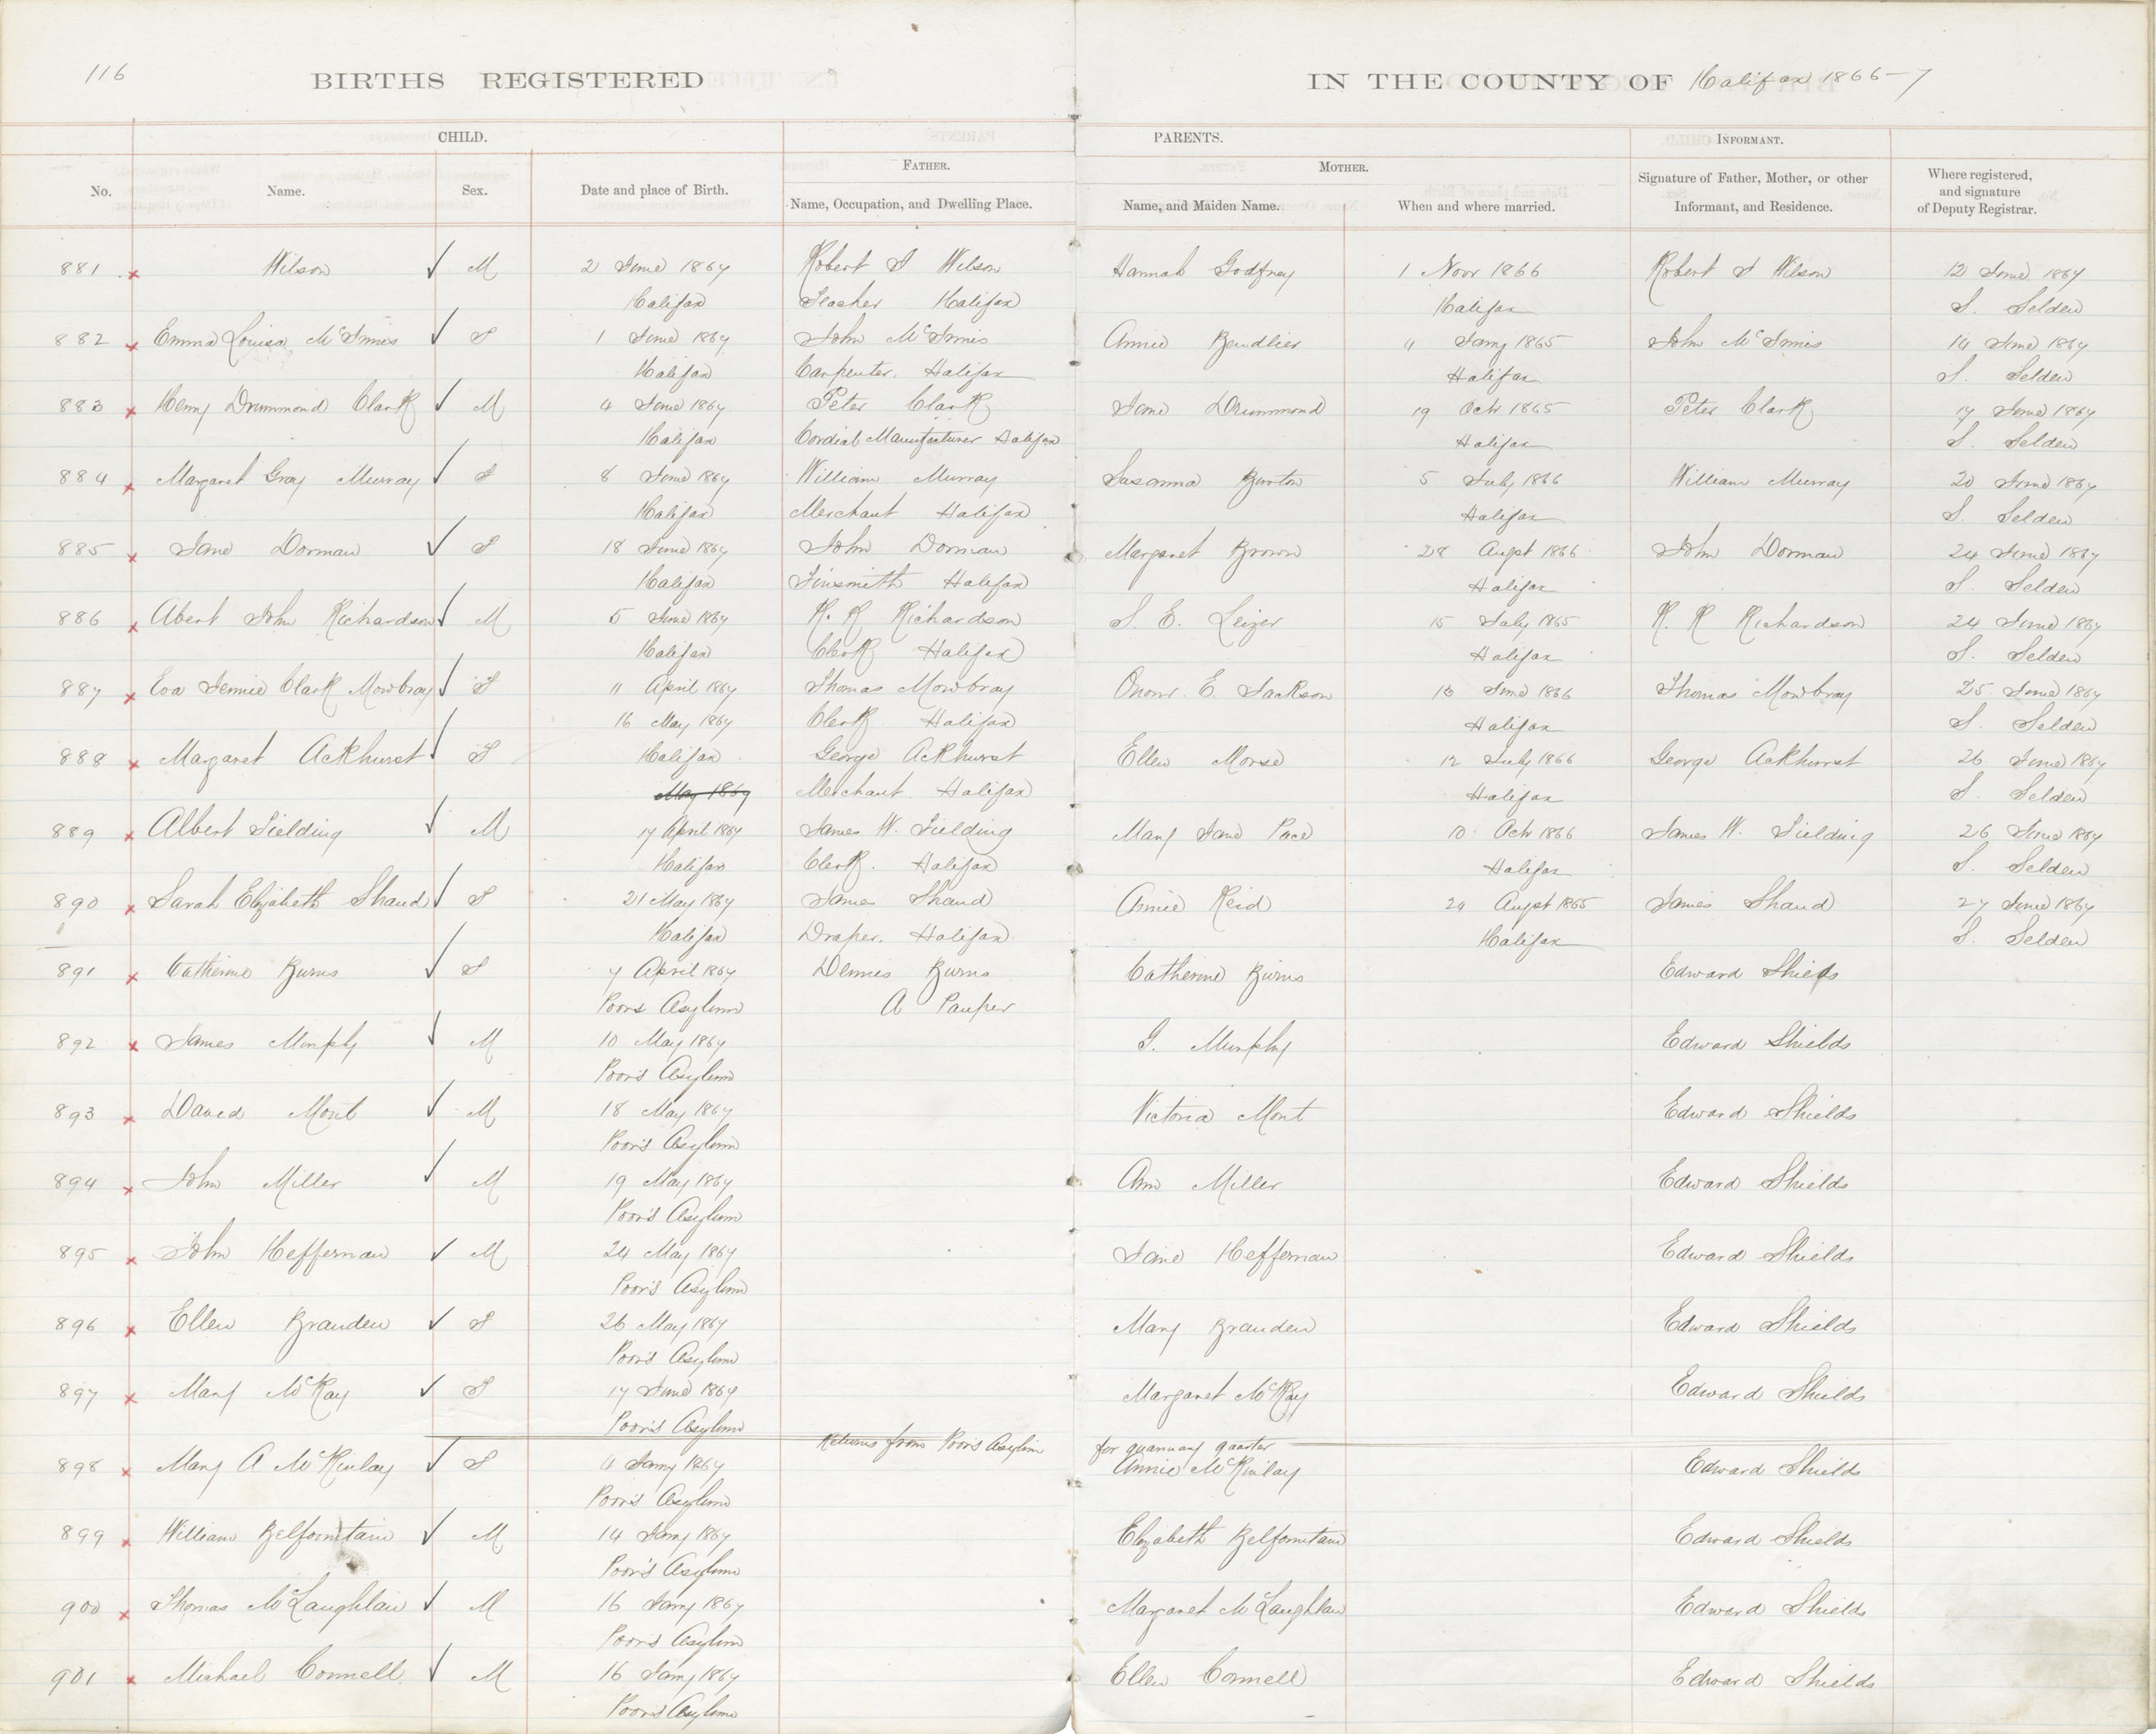 116
BIRTHS REGISTERED IN THE COUNTY OF Halifax 1866-7
CHILD. PARENTS. INFORMANT.
FATHER. MOTHER.
No. Name. Sex. Date and place of Birth. Name, Occupation, and Dwelling Place. Name, and Maiden Name. When and where married. Signature of Father, Mother, or other Informant, and Residence. Where registered, and signature of Deputy Registrar.
881 Wilson M 2 June 1867 Robert J Wilson Hannah Godfrey 1 Novr 1866 Robert J Wilson 12 June 1867
Halifax Teacher Halifax Halifax S. Selden
882 Emma Louisa McInnis F 1 June 1867 John McInnis Annie 11 Jany 1865 John McInnis 14 June 1867
Halifax Carpenter. Halifax Halifax S. Selden
883 Henry Drummond Clark M 4 June 1867 Peter Clark Jane Drummond 19 Octr 1865 Peter Clark 17 June 1867
Halifax Cordial Manufacturer Halifax Halifax S. Selden
884 Margaret Gray Murray F 8 June 1867 William Murray Susanna Burton 5 July 1866 William Murray 20 June 1867
Halifax Merchant Halifax Halifax S. Selden
885 Jane Dorman F 18 June 1867 John Dorman Margaret Brown 28 Augst 1866 John Dorman 24 June 1867
Halifax Tinsmith Halifax Halifax S. Selden
886 Abert John Richardson M 5 June 1867 R. R Richardson S. E. Leizer 15 July 1865 R. R Richardson 24 June 1867
Halifax Clerk Halifax Halifax S. Selden
887 Eva Jennie Clark Mowbray F 11 April 1867 Thomas Mowbray E. Jackson June 1866 Thomas Mowbray 25 June 1867
16 May 1867 Clerk Halifax Halifax S. Selden
888 Margaret Ackhurst F Halifax George Ackhurst Ellen Morse 12 July 1866 George Ackhurst 26 June 1867
May 1867 Merchant Halifax Halifax S. Selden
889 Albert Fielding M 17 April 1867 James W. Fielding Mary Jane Pace 10 Octr 1866 James W. Fielding 26 June 1867
Halifax Clerk. Halifax Halifax S. Selden
890 Sarah Elizabeth Shand F 21 May 1867 James Shand Annie Reid 24 Augst 1865 James Shand 27 June 1867
Halifax Draper. Halifax Halifax S. Selden
891 Catherine Burns F 7 April 1867 Dennis Burns Catherine Burns Edward Shields
Poors Asylum A Pauper
892 James Murphy M 10 May 1867 G. Murphy Edward Shields
Poor's Asylum
893 David Mont M 18 May 1867 Victoria Mont Edward Shields
Poor's Asylum
894 John Miller M 19 May 1867 Ann Miller Edward Shields
Poor's Asylum
895 John Heffernan M 24 May 1867 Jane Heffernan Edward Shields
Poor's Asylum
896 Ellen Branden F 26 May 1867 Mary Branden Edward Shields
Poor's Asylum
897 Mary McKay F 17 June 1867 Margaret McKay Edward Shields
Poor's Asylum
Returns from Poor's Asylum for quarter
898 Mary A McKinlay F 11 Jany 1867 Annie McKinlay Edward Shields
Poor's Asylum
899 William Belfountain M 14 Jany 1867 Elizabeth Belfountain Edward Shields
Poor's Asylum
900 Thomas McLaughlan M 16 Jany 1867 Margaret McLaughlan Edward Shields
Poor's Asylum
901 Michael Connell M 16 Jany 1867 Ellen Connell Edward Shields
Poor's Asylum